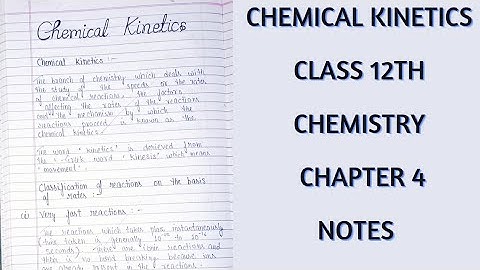 Chemical Kinetics
Chemical kinetics :-
The branch of chemistry which deals with
the study of the speeds or the rates
of chemical reactions, the factors
affecting the rates of the reactions
and the mechanism by which the
reactions proceed is known as the
chemical kinetics.
The word 'kinetics' is derieved from
the Greek word 'kinesis' which means
'movement'.
Classification of reactions on the basis
of rates :-
(i) Very fast reactions : -
The reactions which takes place instantaneously
(time taken is generally
seconds). These are ionic reactions and
there is no bond breaking because ions
are already present in the reactions.
CHEMICAL KINETICS
CLASS 12TH
CHEMISTRY
CHAPTER 4
NOTES